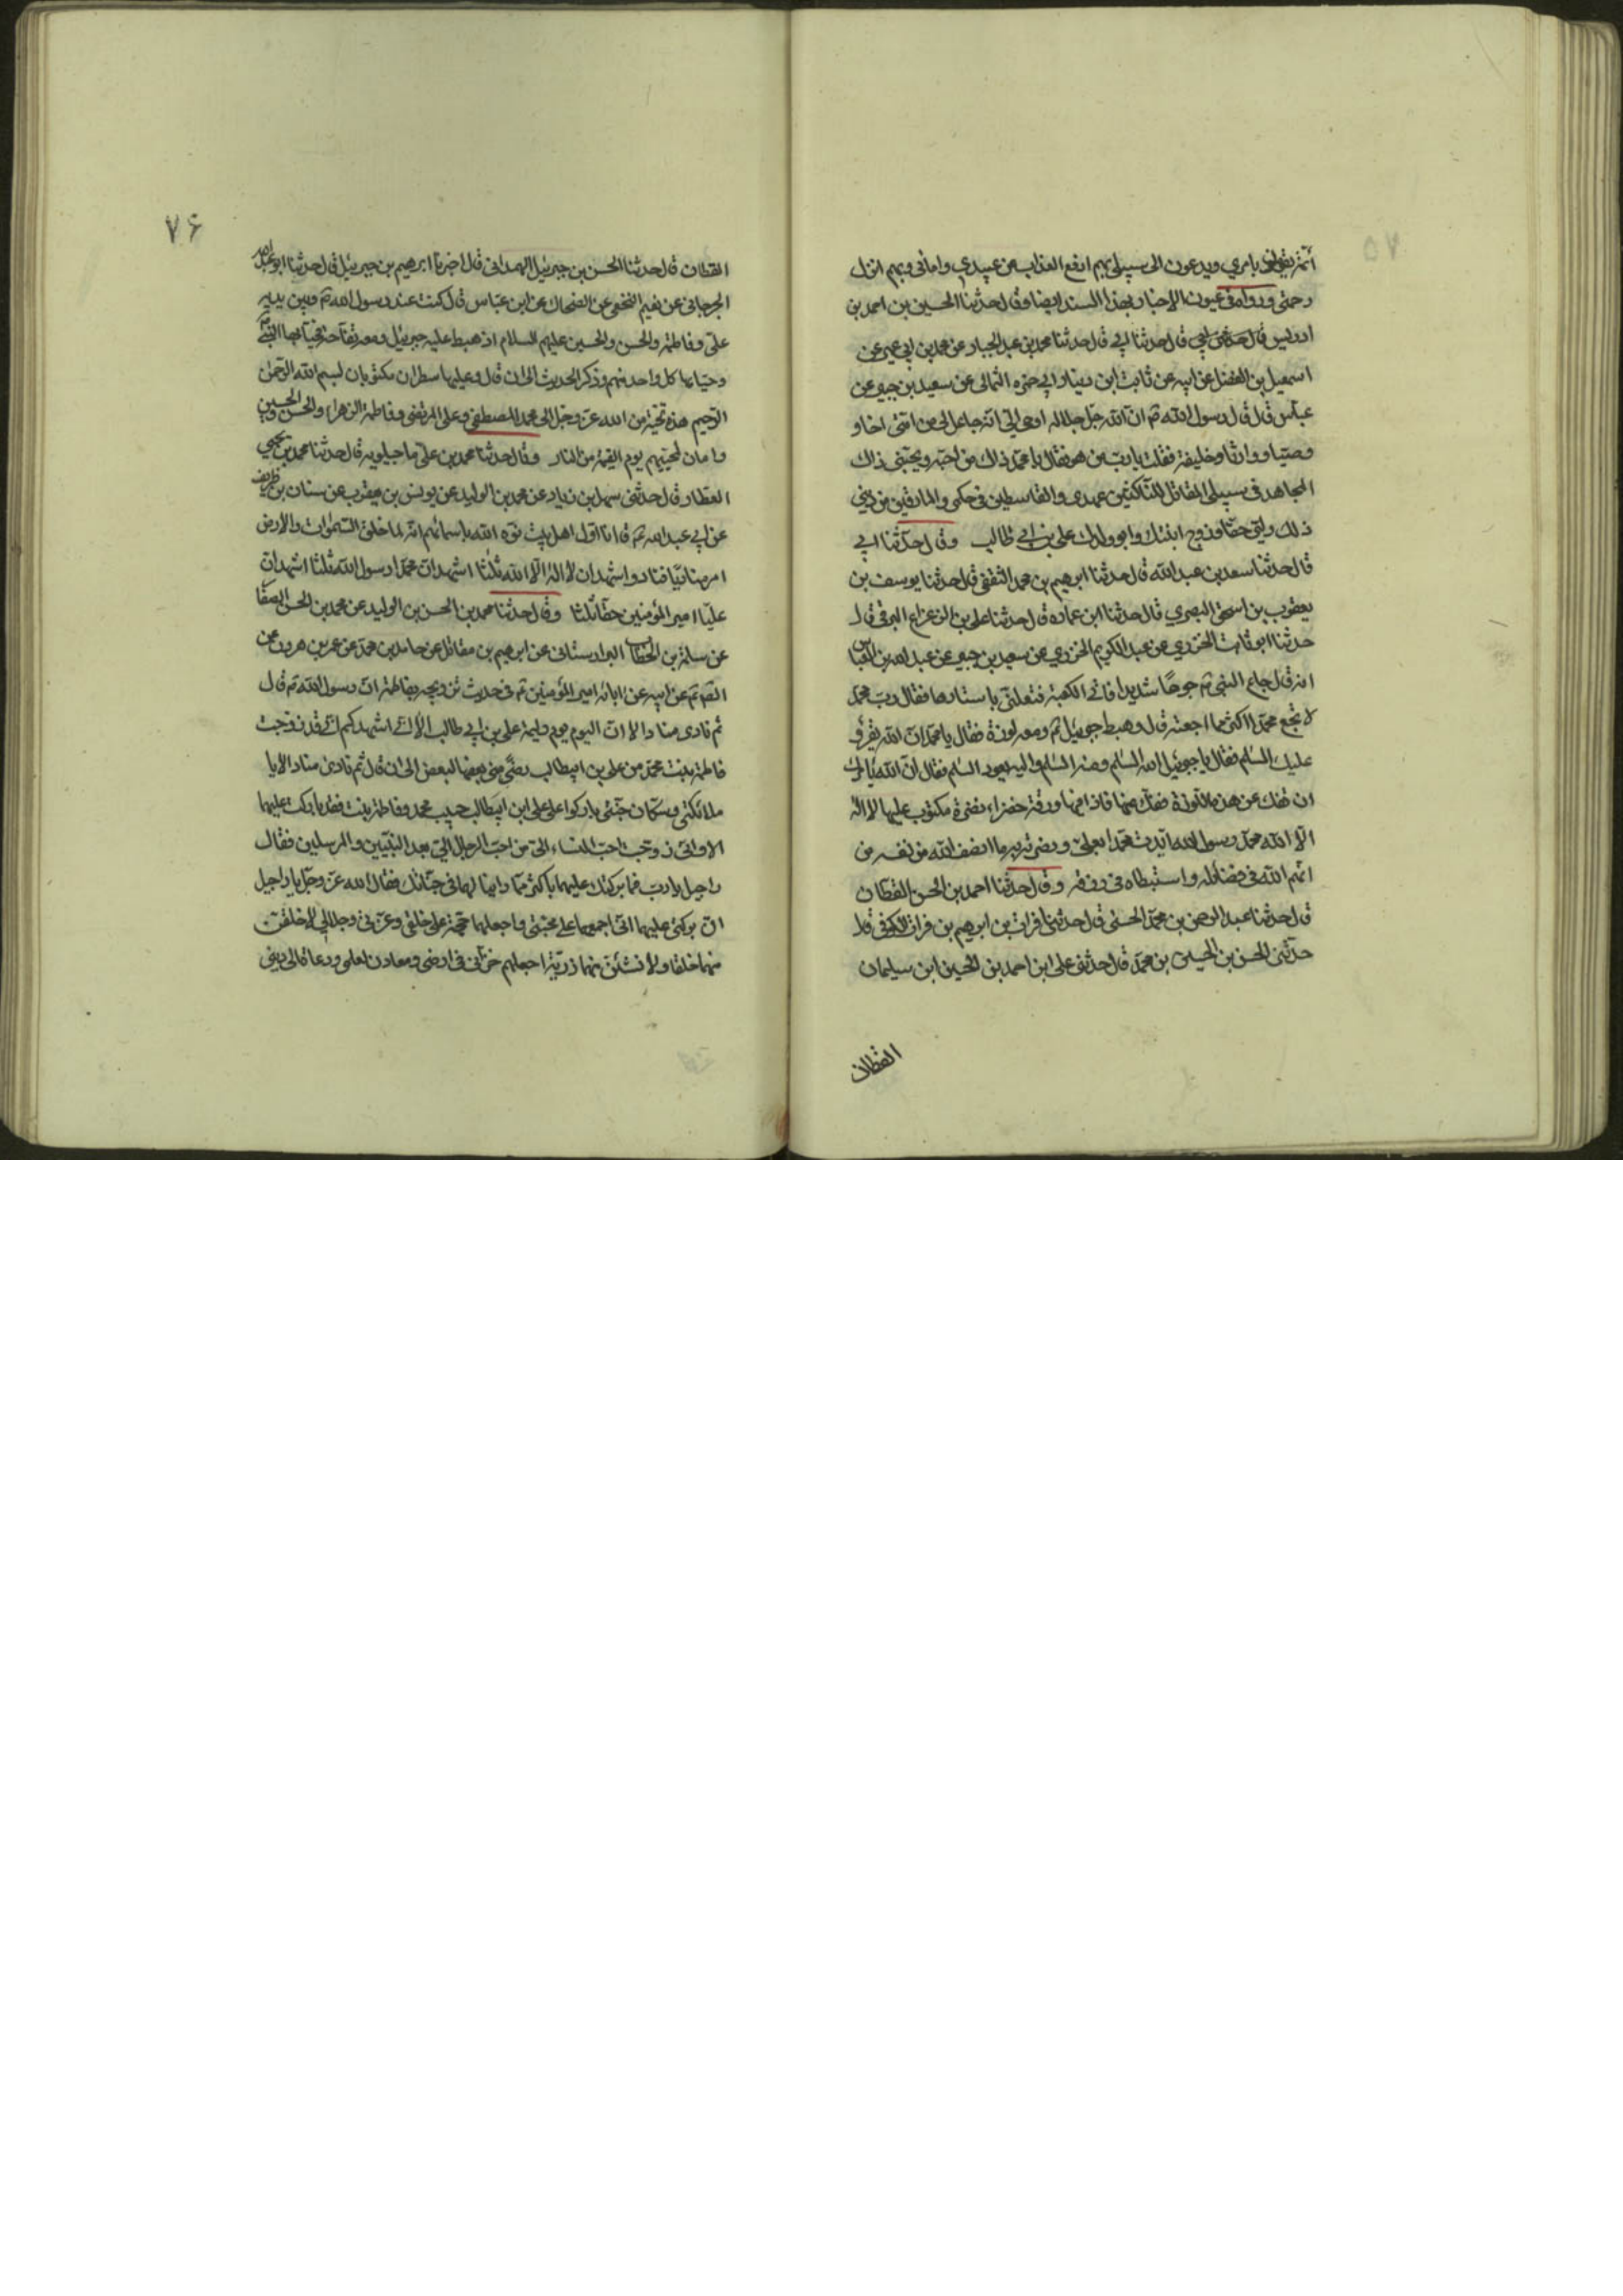 ائمة يقولون بامري ويدعون الى سبيلي بهم ادفع العذاب من عبيدي وامائي وبهم انزل
رحمتي ورواه في عيون الاخبار بهذا السند ايضا وقال حدثنا الحسين بن احمد بن
ادريس قال حدثنا ابي قال حدثنا محمد بن عبد الجبار عن محمد بن ابي عمير عن
اسمعيل بن الفضل عن ابيه عن ثابت ابن دينار ابي حمزه الثمالي عن سعيد بن جبير عن
عباس قال قال رسول الله ص ان الله جل جلاله اوحى الي انه جاعل لي من امتي اخا و
وصيا ووارثا وخليفة فقلت يا رب من هو فقال يا محمد ذلك من احبه ويحبني ذلك
المجاهد في سبيلي المقاتل للناكثين عهدي والقاسطين في حكمي والمارقين من ديني
ذلك وليي حقا وزوج ابنتك وابو ولدك علي بن ابي طالب وقال حدثنا ابي
قال حدثنا سعد بن عبد الله قال حدثنا ابرهيم بن محمد الثقفي قال حدثنا يوسف بن
يعقوب بن اسحق البصري قال حدثنا ابن عماره قال حدثنا علي بن الزعزاع البرقي قال
حدثنا ابو ثابت الخزري عن عبد الكريم الخزري عن سعيد بن جبير عن عبد الله بن العباس
انه قال جاع النبي ص جوعا شديدا فاتى الكعبة فتعلق باستارها فقال رب محمد
لا تجع محمدا اكثر مما اجعته قال وهبط جبرئيل ع ومعه لوزة فقال يا محمد ان الله يقرؤ
عليك السلم فقال يا جبرئيل الله السلم ومنه السلم واليه يعود السلم فقال ان الله يامرك
ان تفك عن هذه اللوزة ففك عنها فاذا فيها ورقة خضراء نضرة مكتوب عليها لا اله
الا الله محمد رسول الله ايدت محمدا بعلي ونصرته به ما انصف الله من نفسه من
اتهم الله في قضائه واستبطاه في رزقه وقال حدثنا احمد بن الحسن القطان
قال حدثنا عبد الرحمن بن محمد الحسني قال حدثني فرات بن ابرهيم بن فرات الكوفي قال
حدثني الحسن بن الحسين بن محمد قال حدثني علي ابن احمد بن الحسين ابن سليمان
القطان
۷۶
القطان قال حدثنا الحسن بن جبرئيل الهمداني قال اخبرنا ابرهيم بن جبرئيل قال حدثنا ابو عبد الله
الجرجاني عن نعيم النخعي عن الضحاك عن ابن عباس قال كنت عند رسول الله ص وبين يديه
علي وفاطمة والحسن والحسين عليهم السلام اذ هبط عليه جبرئيل ومعه تفاحة فحيا بها النبي ص
وحيا بها كل واحد منهم وذكر الحديث الى ان قال وعليها سطران مكتوبان بسم الله الرحمن
الرحيم هذه تحية من الله عز وجل الى محمد المصطفى وعلي المرتضى وفاطمة الزهراء والحسن والحسين
وامان لمحبيهم يوم القيمة من النار وقال حدثنا محمد بن علي ماجيلويه قال حدثنا محمد بن يحيى
العطار قال حدثني سهل بن زياد عن محمد بن الوليد عن يونس بن يعقوب عن سنان بن طريف
عن ابي عبد الله ع قال انا اول اهل بيت نوه الله باسمائهم انه لما خلق السموات والارض
امر مناديا فنادى اشهد ان لا اله الا الله ثلثا اشهد ان محمدا رسول الله ثلثا اشهد ان
عليا امير المؤمنين حقا ثلثا وقال حدثنا محمد بن الحسن بن الوليد عن محمد بن الحسن الصفار
عن سلمة بن الخطاب البراوستاني عن ابرهيم بن مقاتل عن حامد بن محمد عن عمر بن هرون عن
الصم ع عن ابيه عن ابائه امير المؤمنين ع في حديث تزويجه بفاطمة ان رسول الله ص قال
ثم نادى مناد الا ان اليوم يوم وليمة علي بن ابي طالب الا اني اشهدكم اني قد زوجت
فاطمة بنت محمد من علي بن ابيطالب رضى مني بعضها لبعض الى ان قال ثم نادى مناد الا يا
ملائكتي وسكان جنتي باركوا على علي ابن ابيطالب حبيب محمد وفاطمة بنت فقد باركت عليهما
الا واني زوجت احب النساء الي من احب الرجال الي بعد النبيين والمرسلين فقال
راحيل يا رب فما بركتك عليهما باكثر مما راينا لهما في جنانك فقال الله عز وجل يا راحيل
ان بركتي عليهما اني اجمعهما على محبتي واجعلهما حجة على خلقي وعزتي وجلالي لاخلقن
منهما خلقا ولانشئن منهما ذرية اجعلهم خزاني في ارضي ومعادن لعلمي ودعاة الى ديني